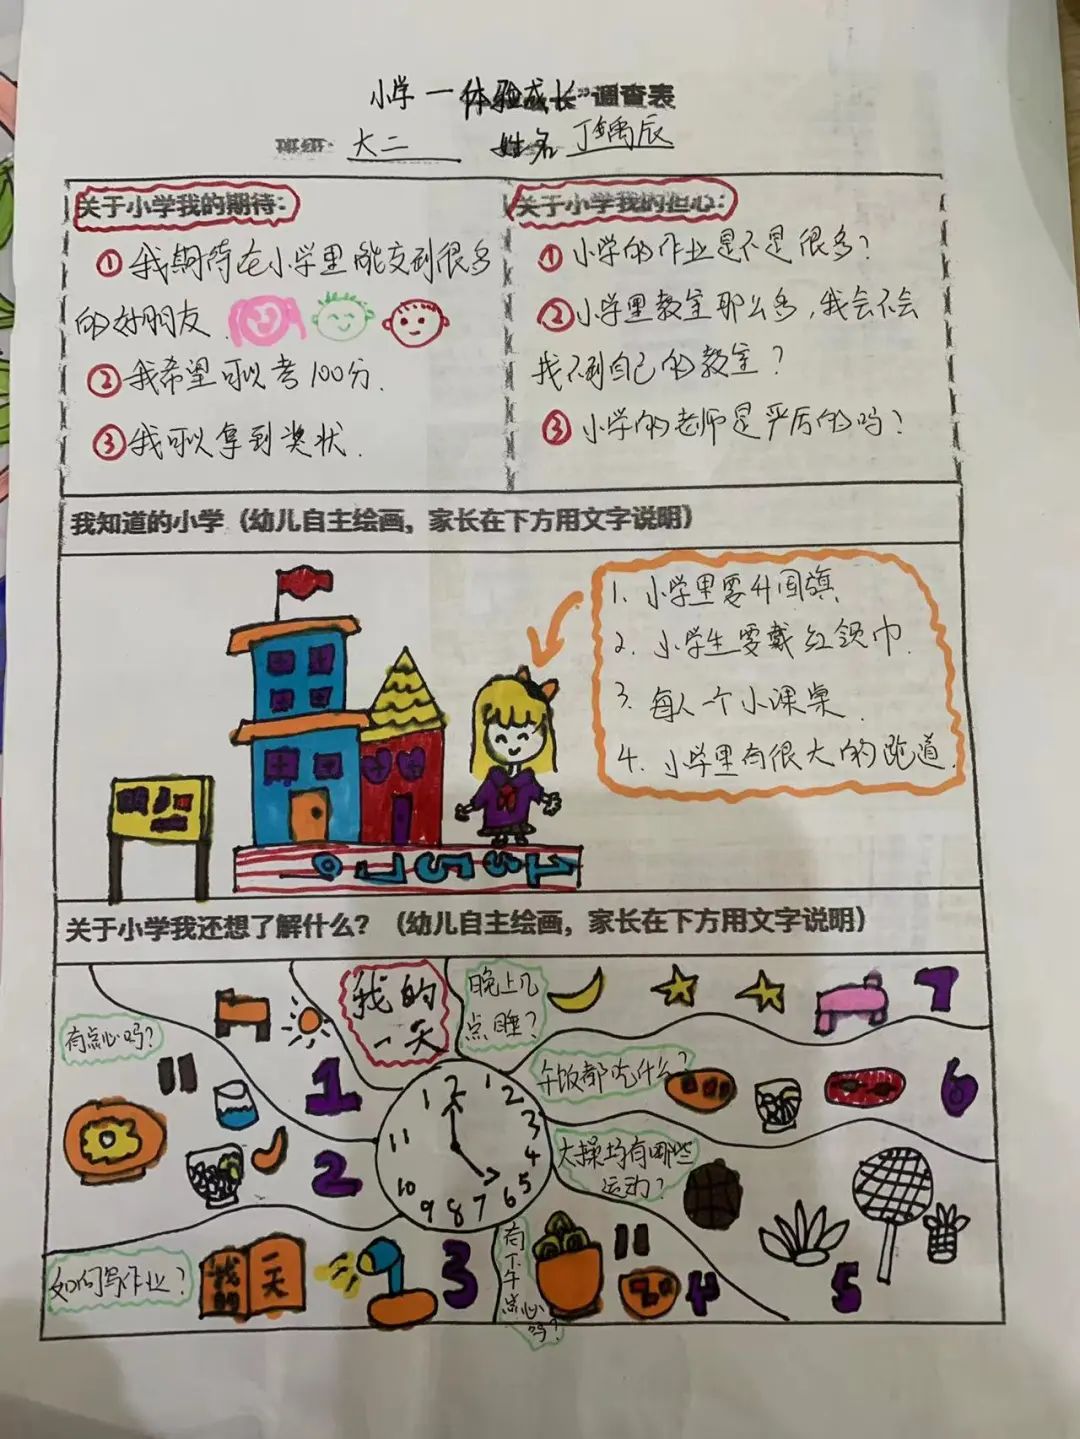 小学一体验成长”调查表
班级: 大二 姓名 丁禹辰
关于小学我的期待:
①我期待在小学里能交到很多
的好朋友.
②我希望可以考100分.
③我可以拿到奖状.
关于小学我的担心:
①小学的作业是不是很多?
②小学里教室那么多,我会不会
找不到自己的教室?
③小学的老师是严厉的吗?
我知道的小学(幼儿自主绘画,家长在下方用文字说明)
1. 小学里要升国旗
2. 小学生要戴红领巾.
3. 每人一个小课桌.
4. 小学里有很大的跑道.
关于小学我还想了解什么?(幼儿自主绘画,家长在下方用文字说明)
我的
一天
晚上几
点睡?
7
有点心吗?
1
午饭都吃什么?
6
2
大操场有哪些
运动?
5
如何写作业?
我的
一天
3
有下午点心吗?
4
12 1 2 3 4 5 6 7 8 9 10 11